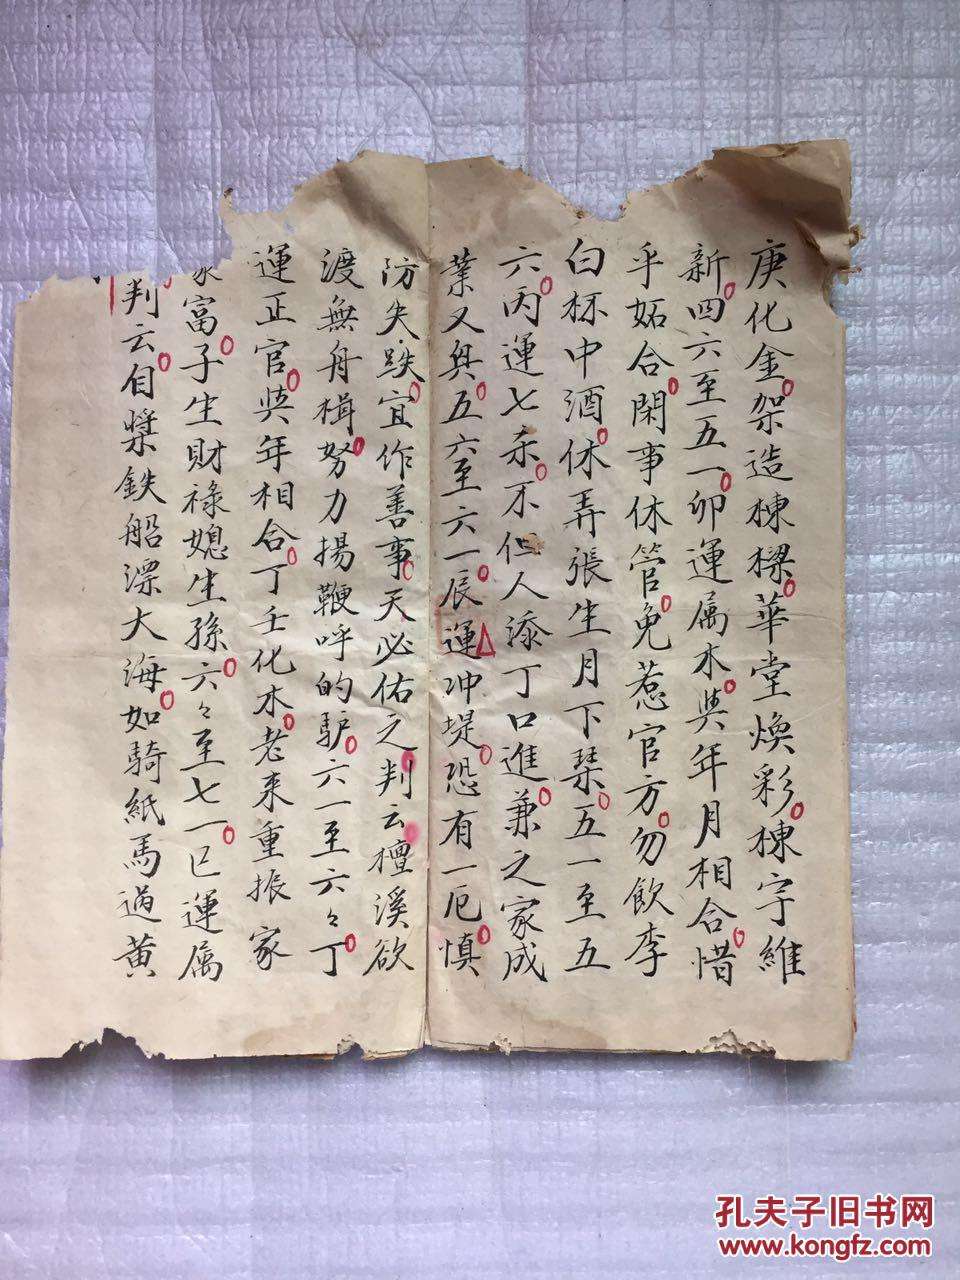 庚化金架造棟樑華堂煥彩棟宇維
新四六至五一卯運属木與年月相合惜
乎妬合閑事休管免惹官方勿飲李
白杯中酒休弄張生月下琴五一至五
六丙運七杀不但人添丁口進兼之家成
業又興五六至六一辰運冲堤恐有一厄慎
防失跌宜作善事天必佑之判云檀溪欲
渡無舟楫努力揚鞭呼的駹六一至六々丁
運正官與年相合丁壬化木老来重振家
家富子生財祿媳生孫六々至七一巳運属
判云自槳鉄船漂大海如騎紙馬過黄
孔夫子旧书网
www.kongfz.com